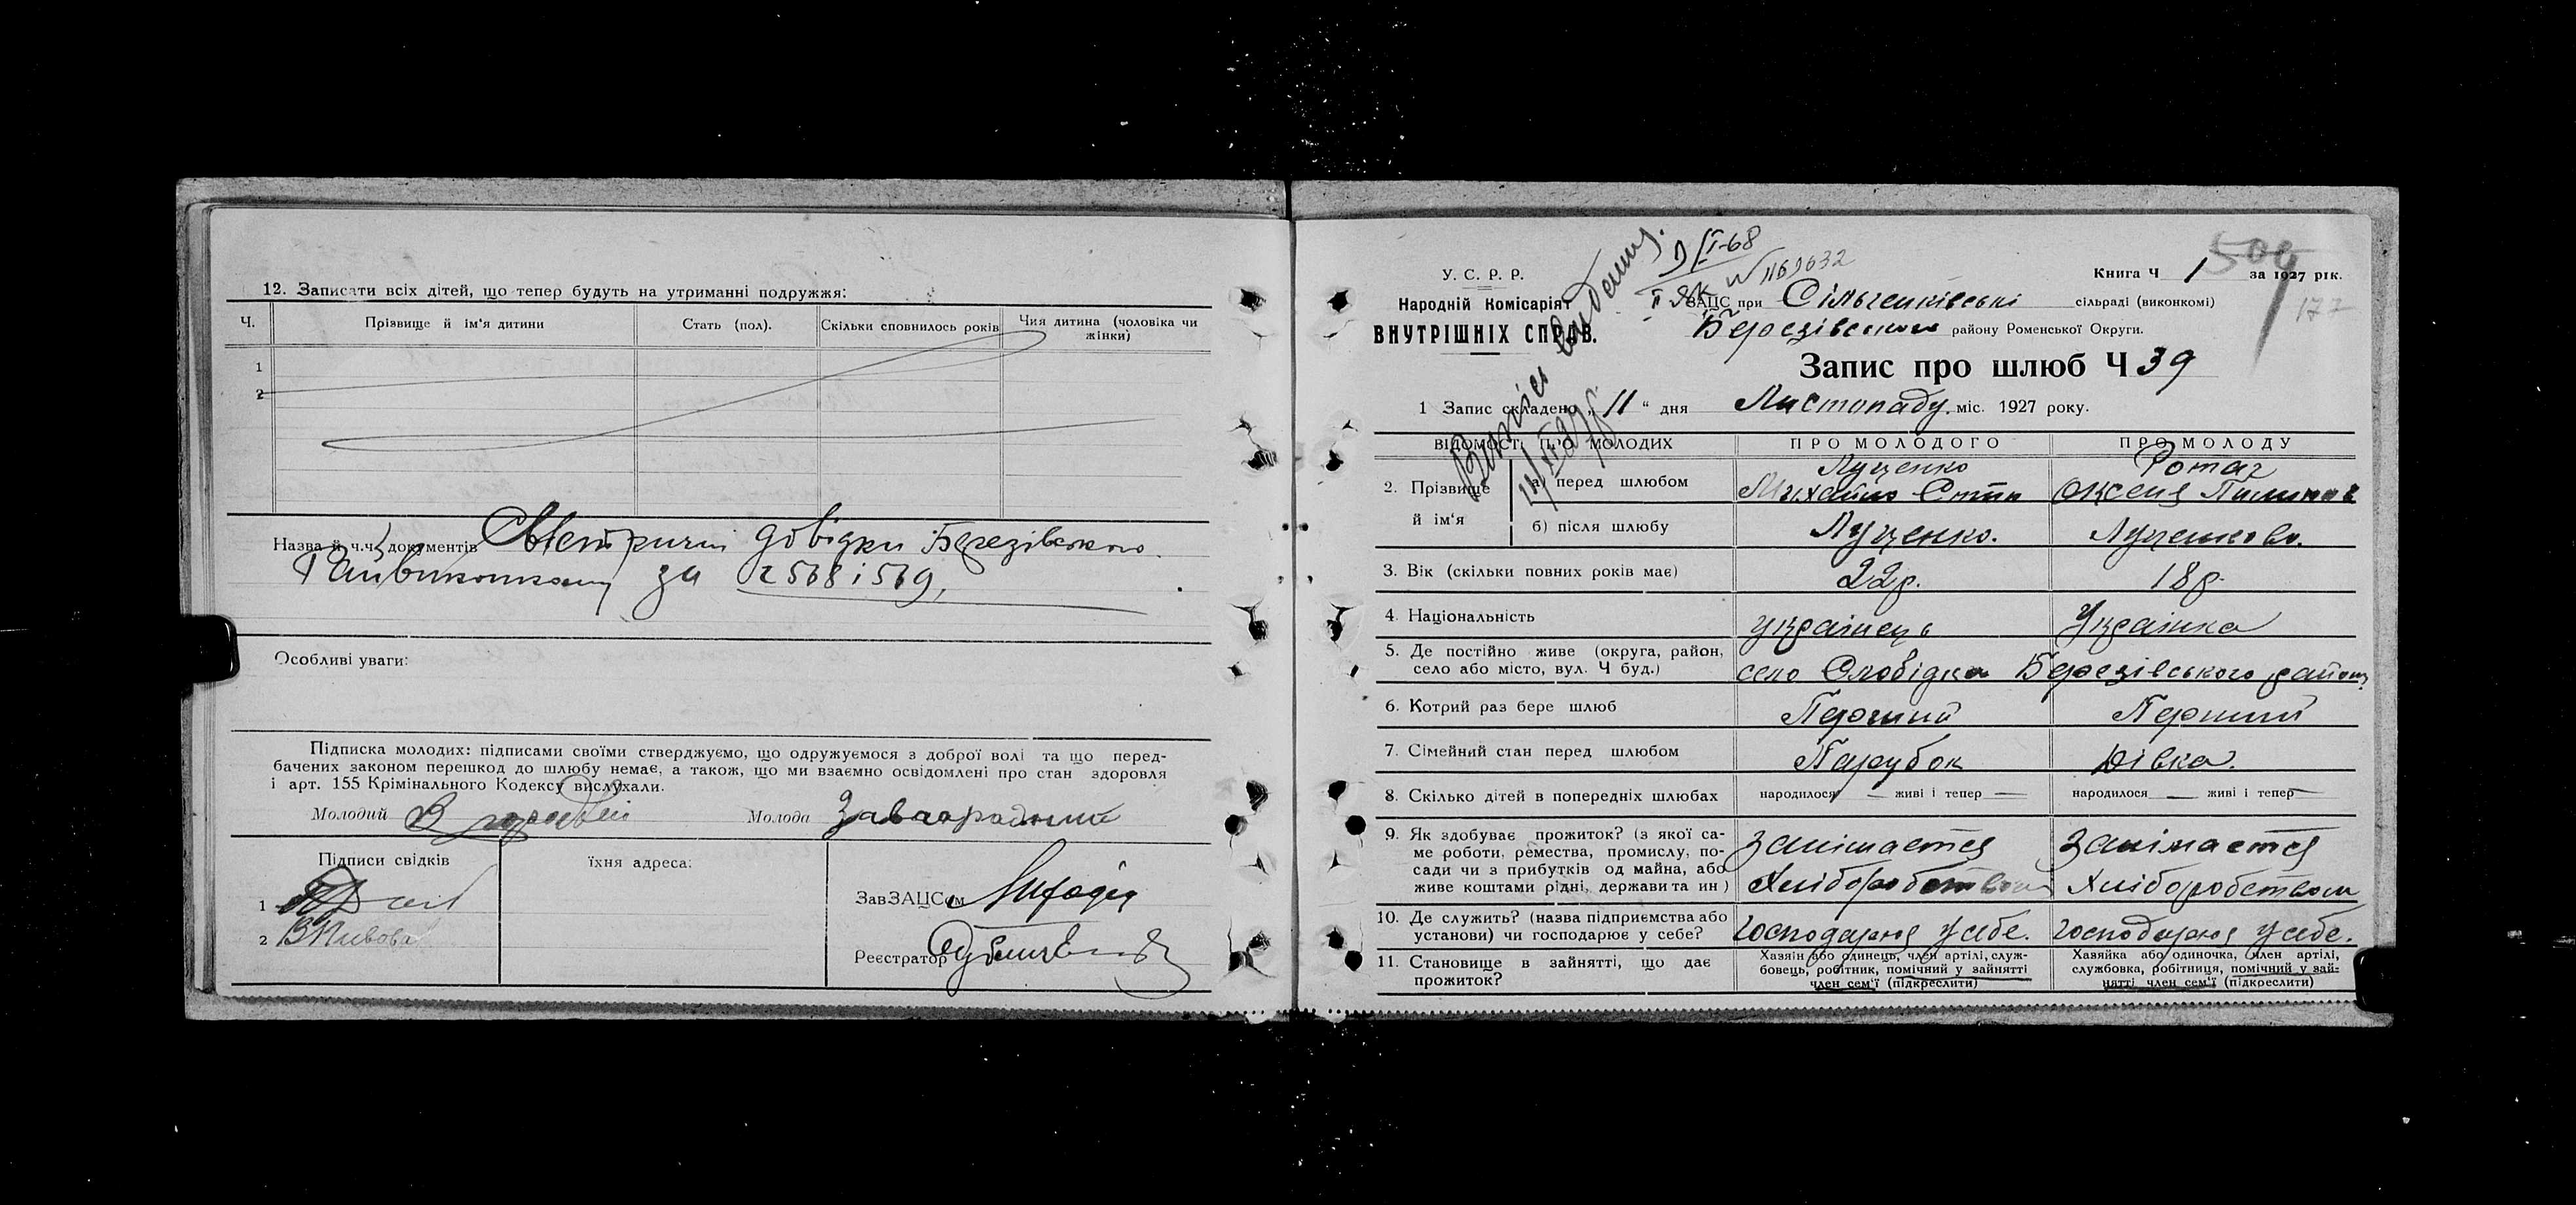 12. Записати всіх дітей, що тепер будуть на утриманні подружжя:
Ч.
Прізвище й ім'я дитини
Стать (пол).
Скільки сповнилось років
Чия дитина (чоловіка чи жінки)
1
2
Назва й ч.ч. документів довідки Березівського
Райвиконкому за 2568 і 569,
Особливі уваги:
Підписка молодих: підписами своїми стверджуємо, що одружуємося з доброї волі та що перед-
бачених законом перешкод до шлюбу немає, а також, що ми взаємно освідомлені про стан здоровля
і арт. 155 Крімінального Кодексу вислухали.
Молодий
Молода
Підписи свідків
їхня адреса:
1
2 В Пивовар
ЗавЗАЦСом
Реєстратор
У. С. Р. Р.
Народній Комісаріят
ВНУТРІШНІХ СПРАВ.
Книга Ч 1 за 1927 рік.
506
177
ЗАЦС при сільраді (виконкомі)
Березівського району Роменської Округи.
Запис про шлюб Ч 39
видання.
I-68
II ЯК № 1169632
1 Запис складено „ 11 “ дня Листопаду. міс. 1927 року.
ВІДОМОСТІ ПРО МОЛОДИХ
ПРО МОЛОДОГО
ПРО МОЛОДУ
2. Прізвище й ім'я
а) перед шлюбом
Луценко
Михайло
Ротаг
Оксеня
б) після шлюбу
Луценко.
Луценкова.
3. Вік (скільки повних років має)
22 р.
18 р.
4. Національність
українець
Українка
5. Де постійно живе (округа, район,
село або місто, вул. Ч буд.)
село Слобідка Березівського району
6. Котрий раз бере шлюб
Перший
Перший
7. Сімейний стан перед шлюбом
Парубок
Дівка.
8. Скілько дітей в попередніх шлюбах
народилося — живі і тепер —
народилося — живі і тепер —
9. Як здобуває прожиток? (з якої са-
ме роботи, ремества, промислу, по-
сади чи з прибутків од майна, або
живе коштами рідні, держави та ин)
занімаетця
Хліборобством
занімаетця
Хліборобством
10. Де служить? (назва підприємства або
установи) чи господарює у себе?
господарює у себе.
господарює у себе.
11. Становище в зайнятті, що дає
прожиток?
Хазяін або одинець, член артілі, служ-
бовець, робітник, помічний у зайнятті
член сем'ї (підкреслити)
Хавяйка або одиночка, член артілі,
службовка, робітниця, помічний у зай-
нятті член сем'ї (підкреслити)